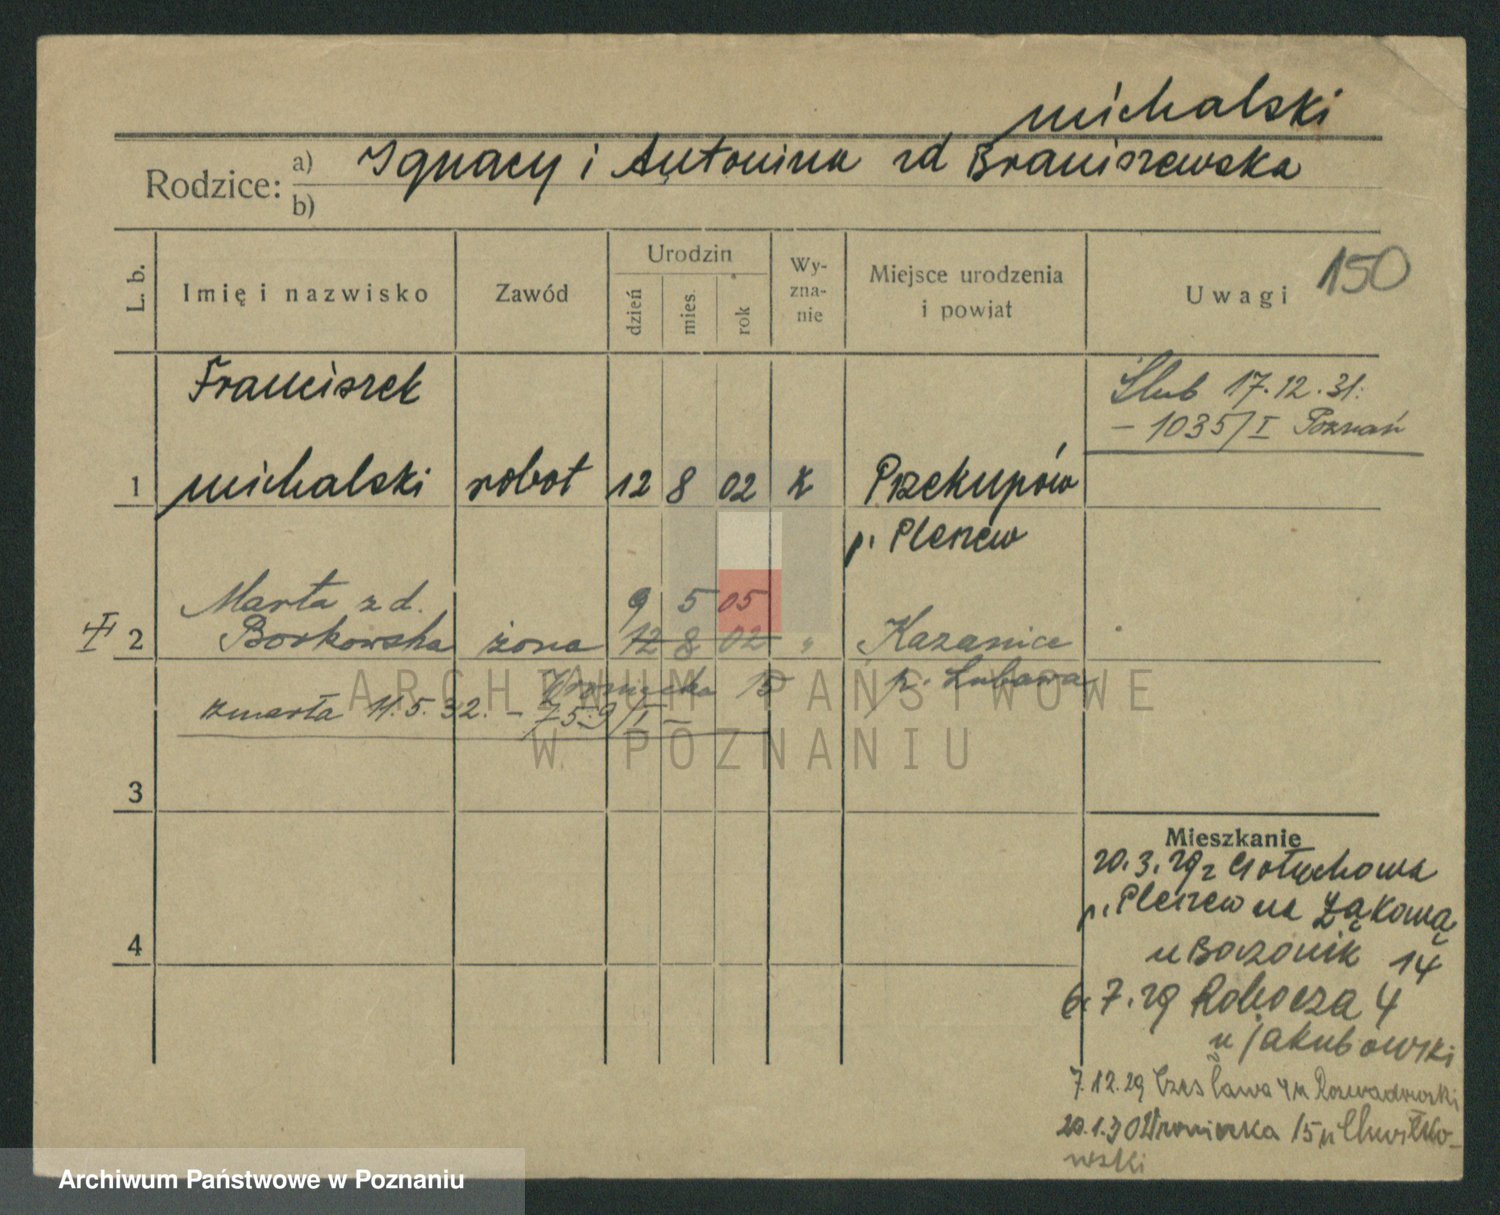 Michalski
Rodzice: a) Ignacy i Antonina zd Braniszewska
b)
L. b. Imię i nazwisko Zawód Urodzin dzień mies. rok Wy-zna-nie Miejsce urodzenia i powiat Uwagi 150
Franciszek
Ślub 17.12.31.
- 1035/I Poznań
1 Michalski robot 12 8 02 k Przekupów
p. Pleszew
Marta z d. 9 5 05
I 2 Borkowska żona 12 8 02 " Kazanice
Wroniecka 15 p. Lubawa
zmarła 11.5.32. - 759/I -
3
4
Mieszkanie
20.3.29 z Gołuchowa
p. Pleszew na Łąkową
u Bozonik 14
6.7.29 Robocza 4
u Jakubowski
7.12.29 Czesława 4 u Rozwadowski
20.1.30 Wroniecka 15 u Chwiłko-
wski
ARCHIWUM PAŃSTWOWE
W POZNANIU
Archiwum Państwowe w Poznaniu